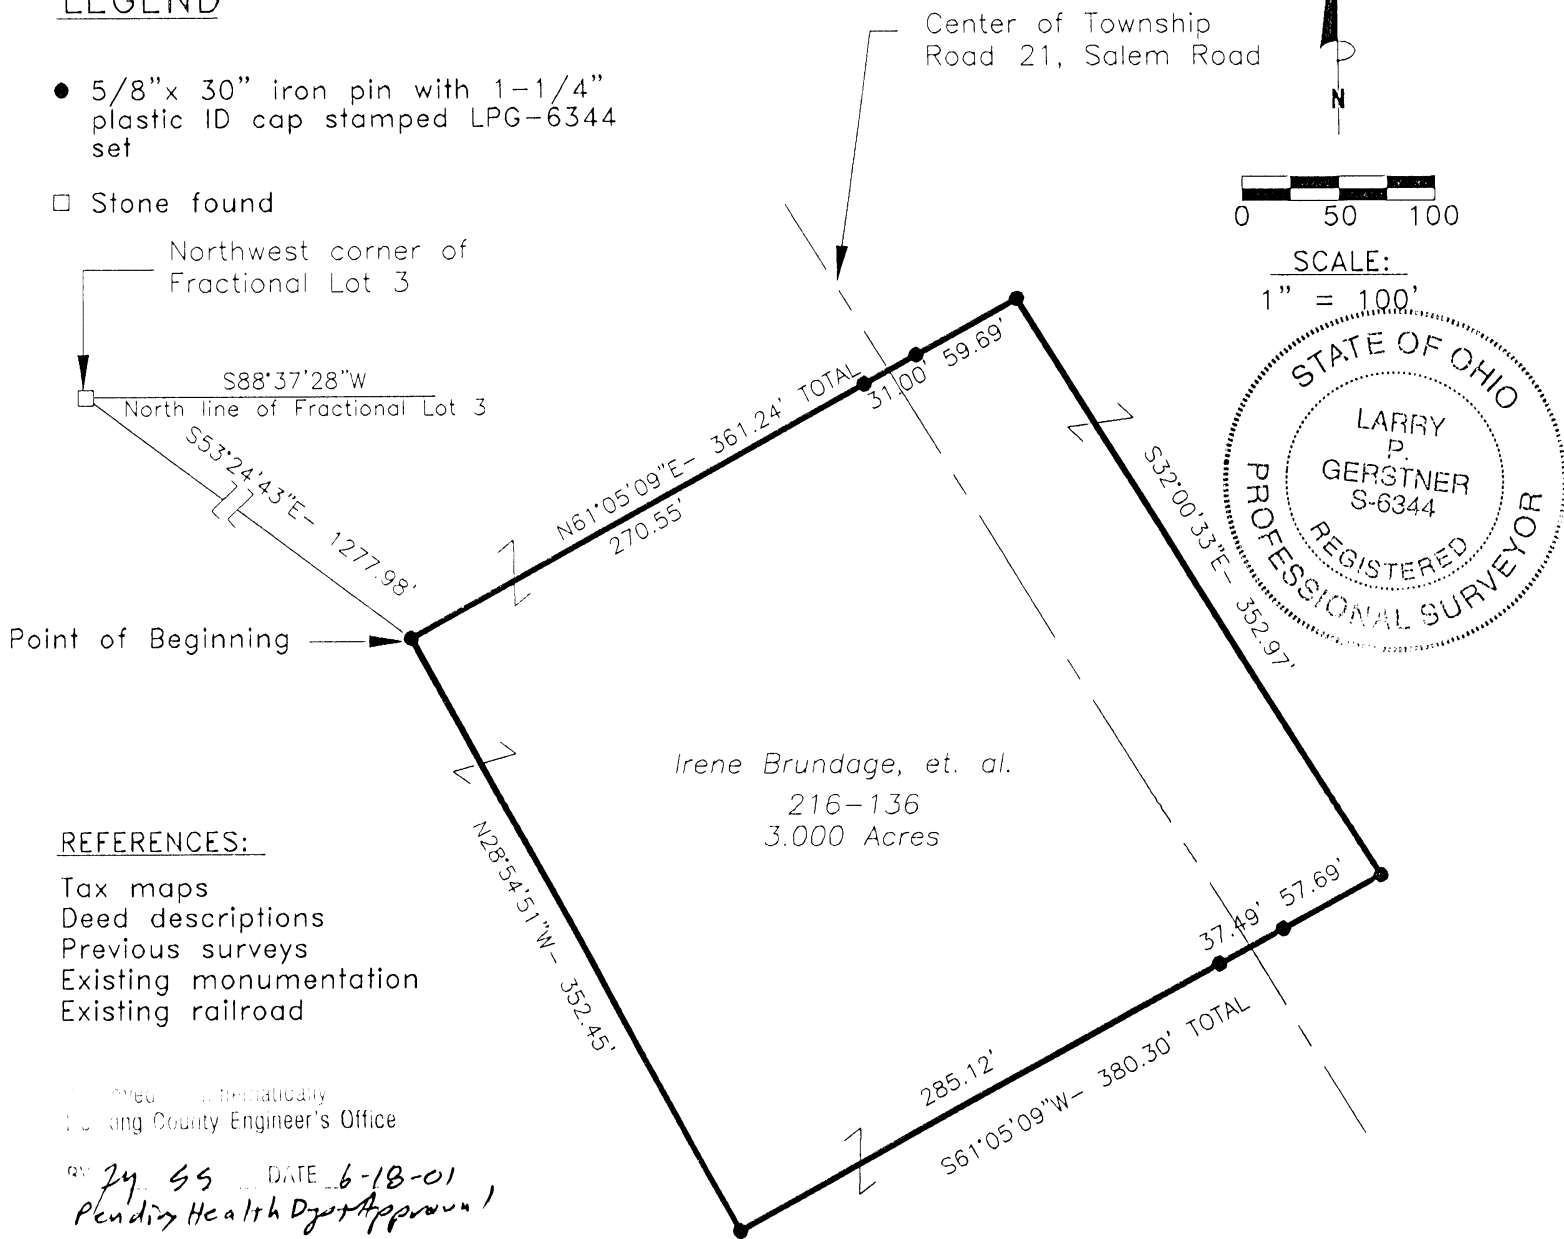 LEGEND
5/8"x 30" iron pin with 1-1/4"
plastic ID cap stamped LPG-6344
set
Stone found
Northwest corner of
Fractional Lot 3
S88°37'28"W
North line of Fractional Lot 3
S53°24'43"E- 1277.98'
Point of Beginning
Center of Township
Road 21, Salem Road
N
0 50 100
SCALE:
1" = 100'
STATE OF OHIO
LARRY
P.
GERSTNER
S-6344
REGISTERED
PROFESSIONAL SURVEYOR
N61°05'09"E- 361.24' TOTAL
270.55'
31.00'
59.69'
S32°00'33"E- 352.97'
Irene Brundage, et. al.
216-136
3.000 Acres
N28°54'51"W- 352.45'
57.69'
37.49'
285.12'
S61°05'09"W- 380.30' TOTAL
REFERENCES:
Tax maps
Deed descriptions
Previous surveys
Existing monumentation
Existing railroad
County Engineer's Office
DATE 6-18-01
Pending Health Approval